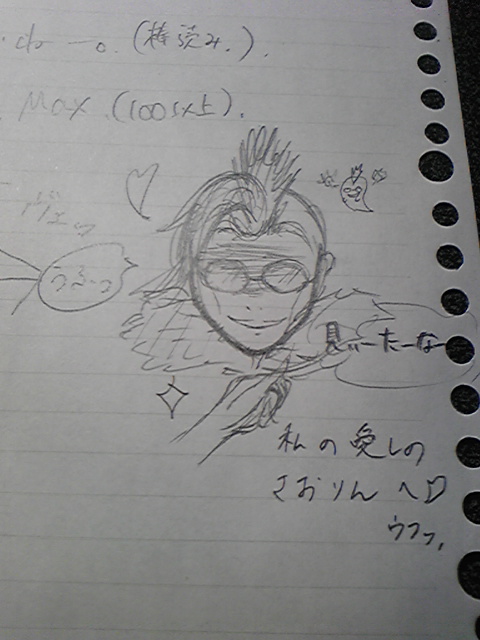 ねー。(棒読み。)。
Max.(100以上)。
うふーっ
見ぃーたーなー
私の愛しの
さおりんへ♡
ウフッ。